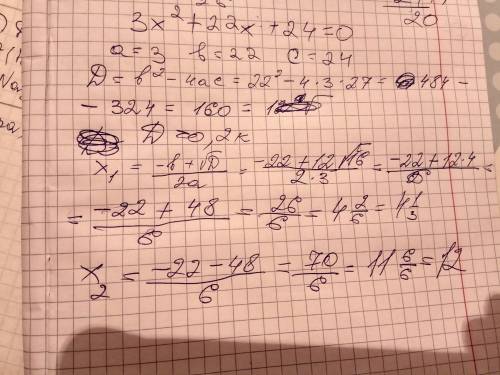 20
3x² + 22x + 24 = 0
a = 3 в = 22 c = 24
D = в² - 4ac = 22² - 4·3·27 = 484 -
- 324 = 160 =
D > 0, 2к
x₁ = (-в + √D)/2a = (-22 + 12√16)/(2·3) = (-22 + 12·4)/6 =
= (-22 + 48)/6 = 26/6 = 4 2/6 = 4 1/3
x₂ = (-22 - 48)/6 = 70/6 = 11 6/6 = 12